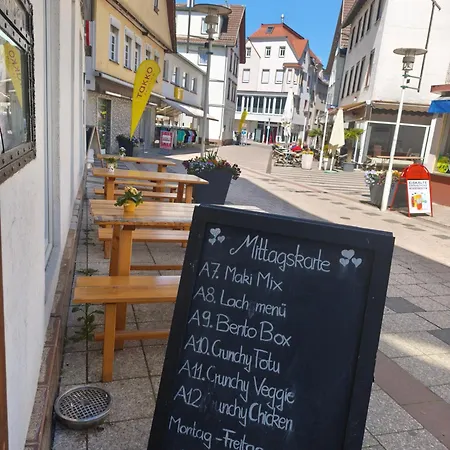 TAKKO
Mittagskarte
A7. Maki Mix
A8. Lachsmenü
A9. Bento Box
A10. Crunchy Tofu
A11. Crunchy Veggie
A12. Crunchy Chicken
Montag - Freitag